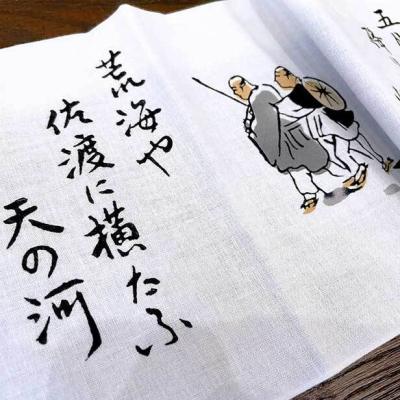 五
荒海や
佐渡に横たふ
天の河